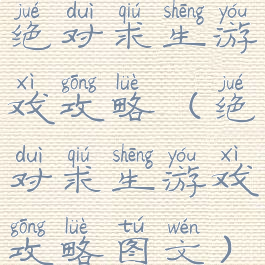 jué duì qiú shēng yóu
绝对求生游
xì gōng lüè jué
戏攻略（绝
duì qiú shēng yóu xì
对求生游戏
gōng lüè tú wén
攻略图文）